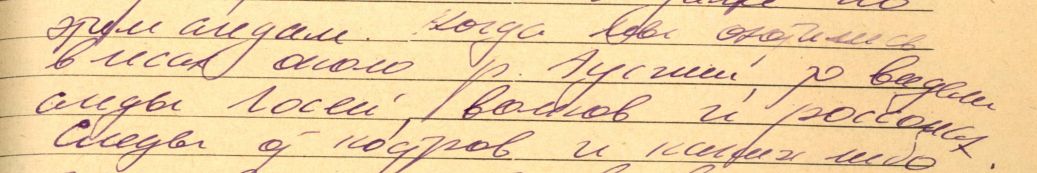 этим следам. Когда бы охотились
в лесах около р. Ауспии, то видели
следы лосей, волков и россомах.
Следы от костров и каких либо